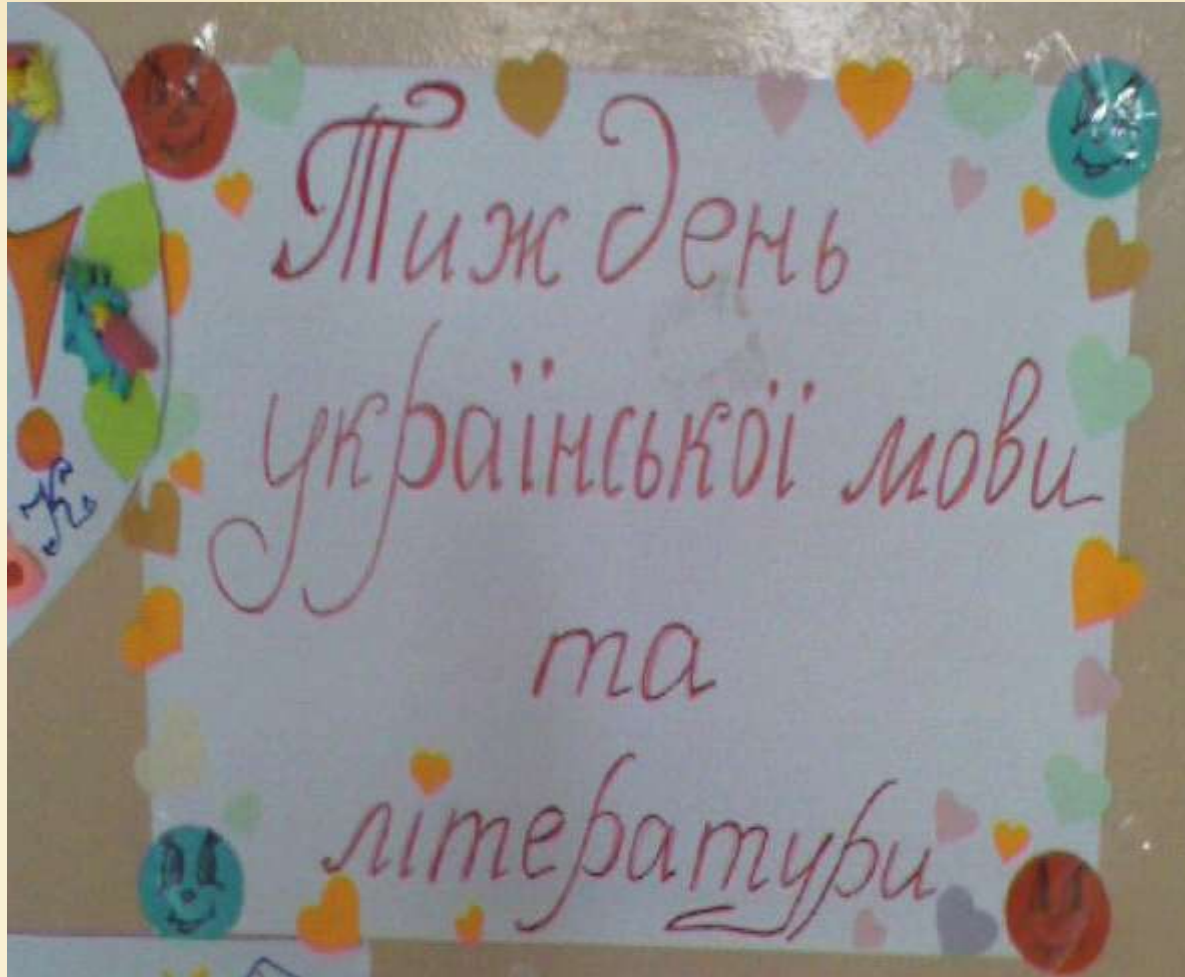 Тиждень
української мови
та
літератури